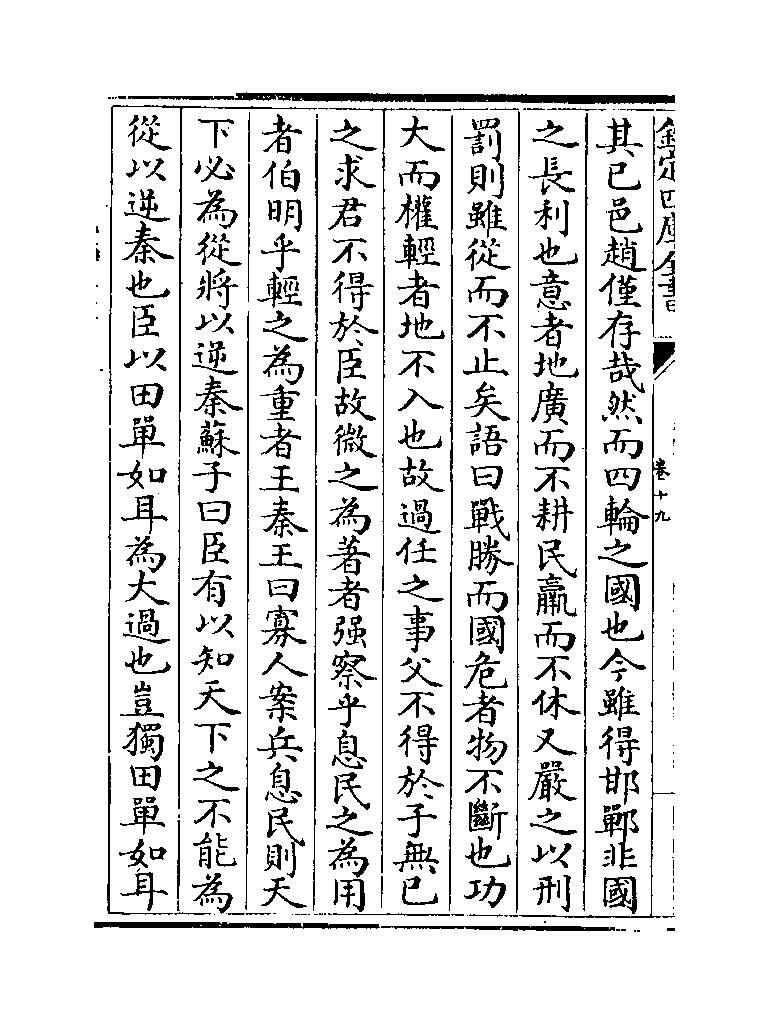 欽定四庫全書
卷十九
其已邑趙僅存哉然而四輪之國也今雖得邯鄲非國
之長利也意者地廣而不耕民羸而不休又嚴之以刑
罰則雖從而不止矣語曰戰勝而國危者物不斷也功
大而權輕者地不入也故過任之事父不得於子無已
之求君不得於臣故微之為著者强察乎息民之為用
者伯明乎輕之為重者王秦王曰寡人案兵息民則天
下必為從將以逆秦蘇子曰臣有以知天下之不能為
從以逆秦也臣以田單如耳為大過也豈獨田單如耳